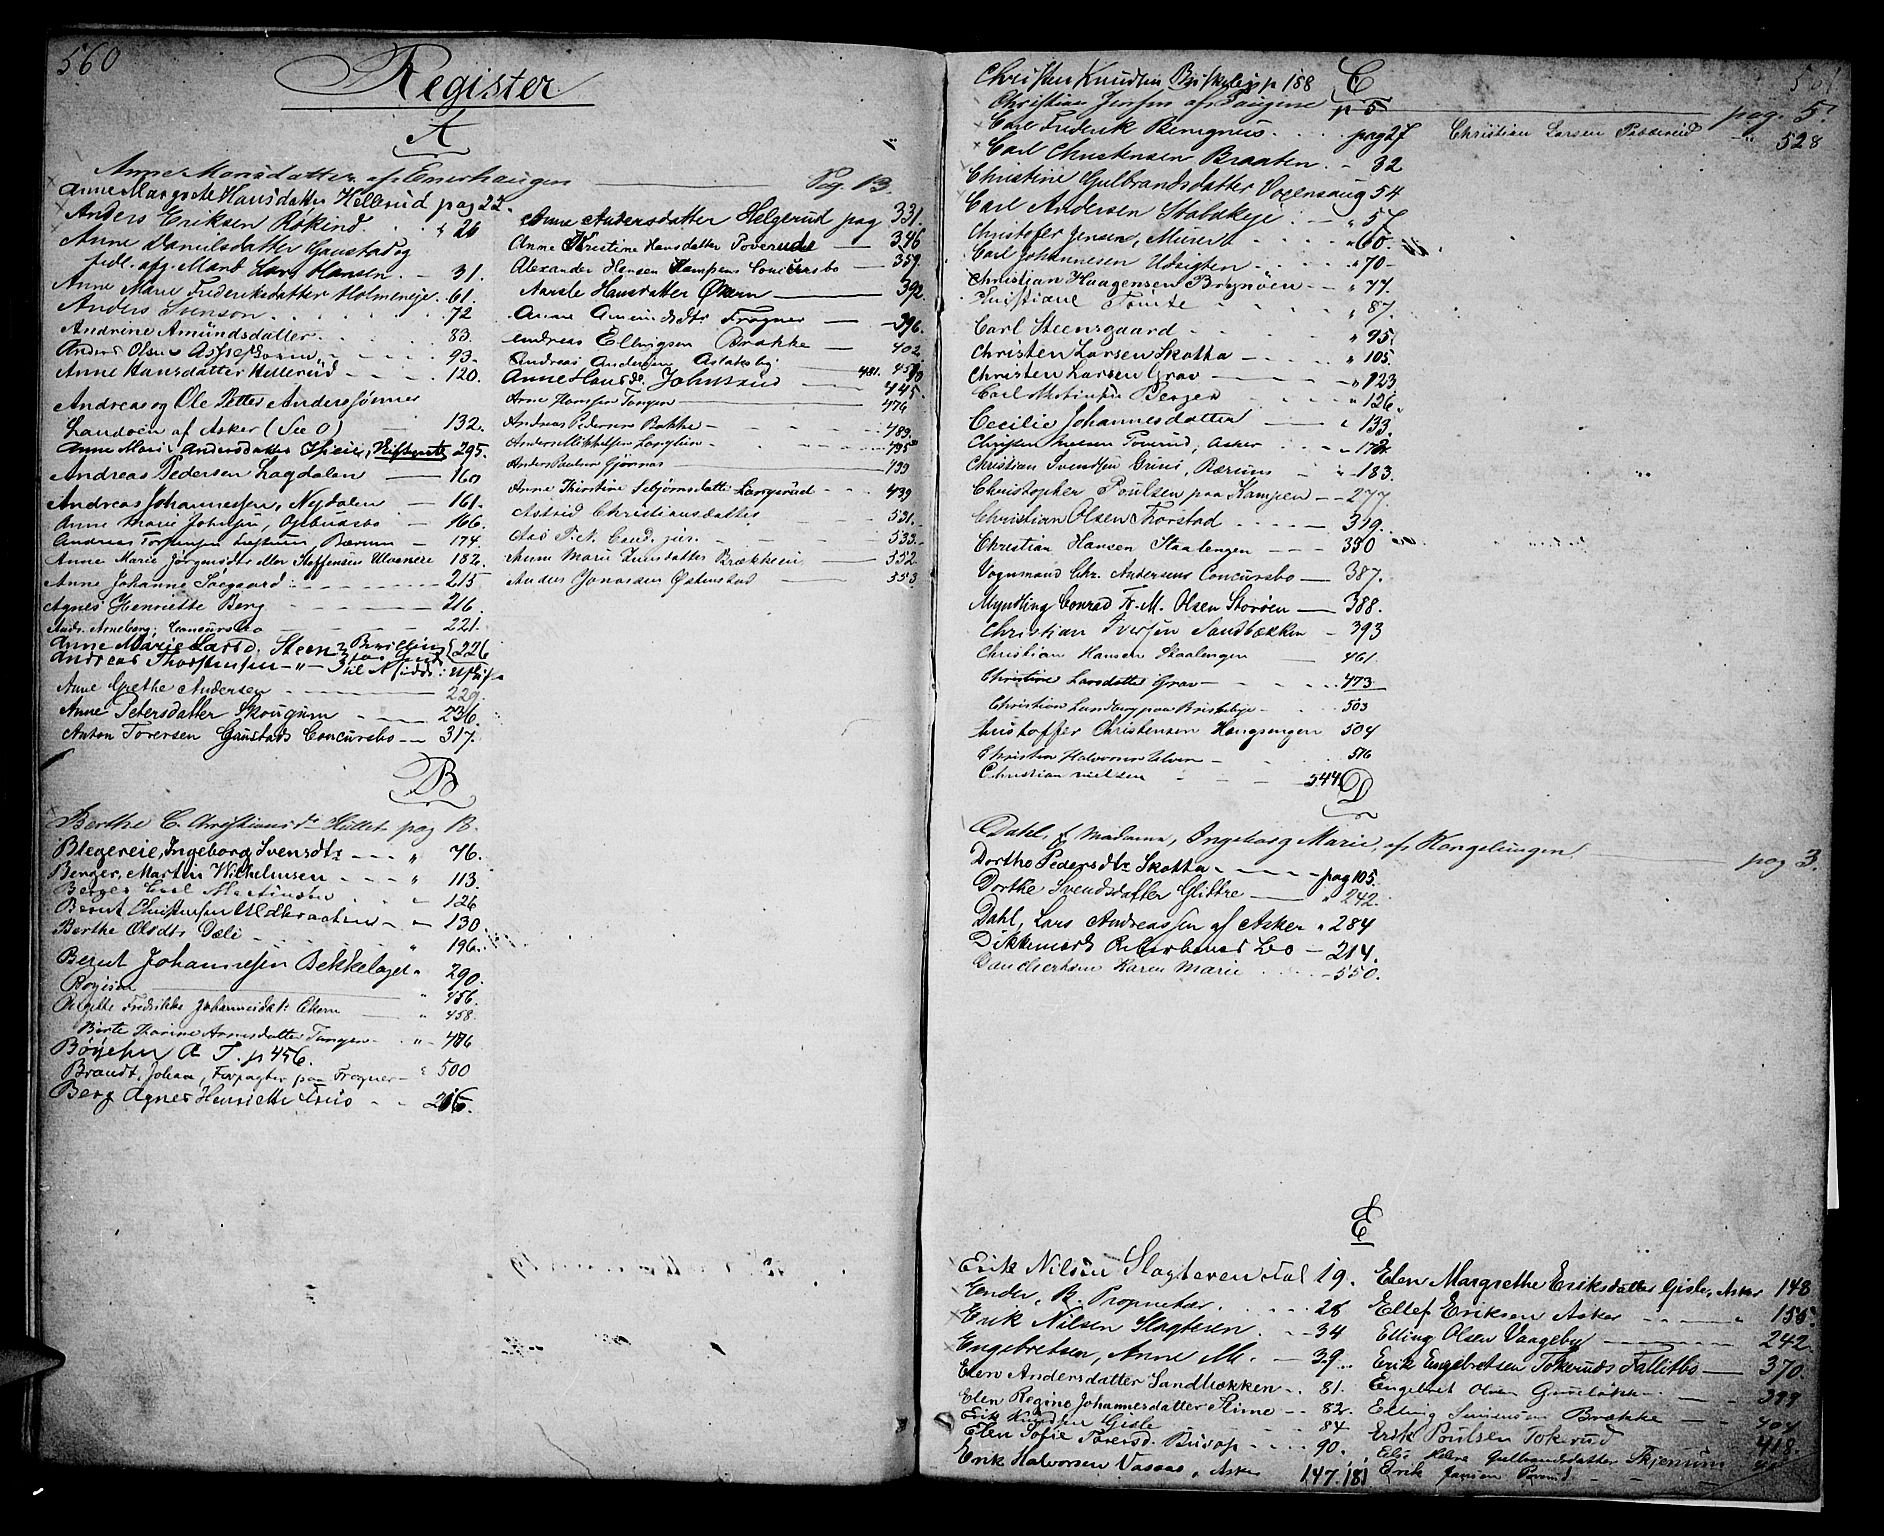 560
Register
A
Anne Monsdatter af Enerhaugen Pag. 13.
Anne Margrete Hansdatter Hellerud pag 22.
Anders Eriksen Røkind 26
Anne Danielsdatter Gaustad og
hdl. afg. Mand Lars Hansen 31.
Anne Marie Frederiksdatter Holmeneje 61.
Anders Svenson 72
Andrine Amundsdatter 83.
Anders Olsen 93.
Anne Hansdatter Hellerud 120.
Andreas og Ole Petter Anderssønner
Landøen af Asker (See O) 132.
Anne Marie Andersdatter 295.
Andreas Pedersen Lagdalen 160
Andreas Johannessen, Nydalen 161.
Anne Marie Johnsen, 166.
Andreas Bærum 174.
Anne Marie Jørgensdtr eller Steffensen Ulvenere 182.
Anne Johanne 215
Agnes Henriette Berg 216.
Andr. Arneberg, Concursbo 221.
Anne Marie Larsd. Steen 226
Andreas Thorstensen
Anne Grethe Andersen 229.
Anne Petersdatter Skougum 236.
Anton Torersen Gaustads Concursbo 317.
Anne Andersdatter Helgerud pag 331.
Anne Kirstine Hansdatter Poverud 346
Alexander Hansen Kampens Concursbo 359.
Hansdatter Økern 392.
Anne Amundsdtr Frogner 396.
Andreas Ellingsen Brække 402.
Andreas Andersen 481. 457
Anne Hansd. Johnsrud 445.
Arne Hansen Tangen 476
Andreas Pedersen Bakke 483.
Anders Mikkelsen 495
Anders Paulsen Gjønnæs 499
Anne Kirstine Langerud 439
Astrid Christiansdatter 531.
Aas P. N. Cand. jur. 533.
Anne Marie Brækken 552.
Anders Jonassen Østenstad 553.
B
Berthe C. Christiansd. Hullet pag 18.
Blegereie, Ingeborg Svensdtr " 76.
Berger, Martin Wilhelmsen " 113.
Berger Carl 126
Bernt Christensen 130
Berthe Olsdtr Dæli " 196.
Bernt Johannesen Bekkelaget " 290.
Bøyesen " 456.
Fredrikke Johannesdat. Økern " 458.
Berte Karine Arnesdatter Tangen " 476
Bøyesen A T. p 456.
Brandt, Johan, Forpagter paa Frogner 500
Berg Agnes Henriette Friis 216.
561
Christen Knudsen p 158
C
Christian Jensen af Taugene p 5 pag. 5.
Carl Frederik Benignus. pag 27
Christian Larsen " 528
Carl Christensen Braaten. 32
Christine Gulbrandsdatter Voxensaug 54
Carl Andersen Stabækeje " 57
Christofer Jensen, Murer " 60.
Carl Johannesen Udsigten " 70
Christian Haagensen Brynøen " 77.
Christiane Tomte " 87.
Carl Steensgaard " 95.
Christen Larsen Skotta " 105.
Christen Larsen Grav " 123
Carl Berger " 126.
Cecilie Johannesdatter " 133.
Christen Nielsen Poverud, Asker " 178
Christian Svendsen Grini, Bærum " 183.
Christopher Poulsen paa Kampen 277.
Christian Olsen Thorstad 319.
Christian Hansen Staalengen 350
Vognmand Chr. Andersens Concursbo 387.
Myndling Conrad Fr. M. Olsen Storøen 388.
Christian Iversen Sandbækken 393
Christian Hansen Staalengen 461.
Christine Larsdatter Grav 473
Christian Lundberg paa Briskebye 503
Christoffer Christensen Hengsengen 504
Christen Halvorsen Ulven 516
Christian Nielsen 544
D
Dahl, f. Madame, Ingeborg Marie, af Kongelungen pag 3.
Dorthe Pedersdtr Skotta pag 105.
Dorthe Svendsdatter Glittre " 242.
Dahl, Lars Andreassen af Asker " 284
Dikkemark Bo 214.
Karen Marie 550.
E
Erik Nilsen Slagteren stal 19.
Ender, B. Proprietær. 28
Erik Nilsen Slagteren. 34
Engebretsen, Anne M. 39.
Elen Andersdatter Sandbækken 81.
Elen Regine Johannesdatter Stime 82.
Erik Knudsen Gisle 84
Elen Sofie Torersd. Busop 90.
Erik Halvorsen Vasaas, Asker 147. 181
Elen Margrethe Eriksdatter Gisle, Asker 148
Ellef Eriksen Asker " 155.
Elling Olsen Vaageby 242.
Erik Engebretsen Tokeruds Fallitbo 370.
Engebret Olsen 399
Elling Simensen Brække 404
Erik Poulsen Tokerud 418.
Gulbrandsdatter Skjerium
Erik Jansen